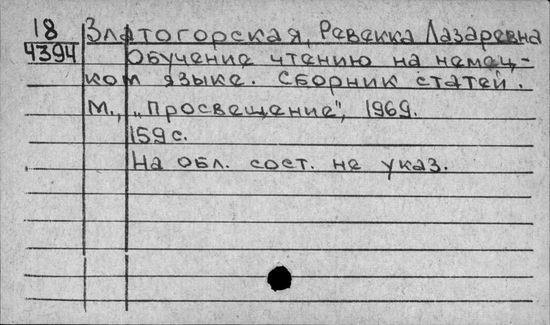 18 Златогорская, Ревекка Лазаревна
4394 Обучение чтению на немец-
ком языке. Сборник статей.
М., „Просвещение", 1969.
159 с.
На обл. сост. не указ.